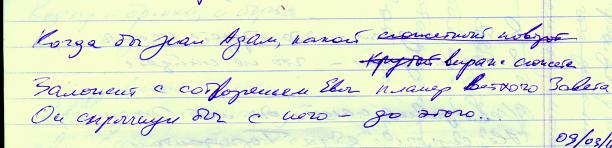 Когда бы знал Адам, какой сюжетный поворот
Крутой вираж сюжета
Заложит с сотворением Евы планер Ветхого Завета
Он спрыгнул бы с него – до этого...
09/03/